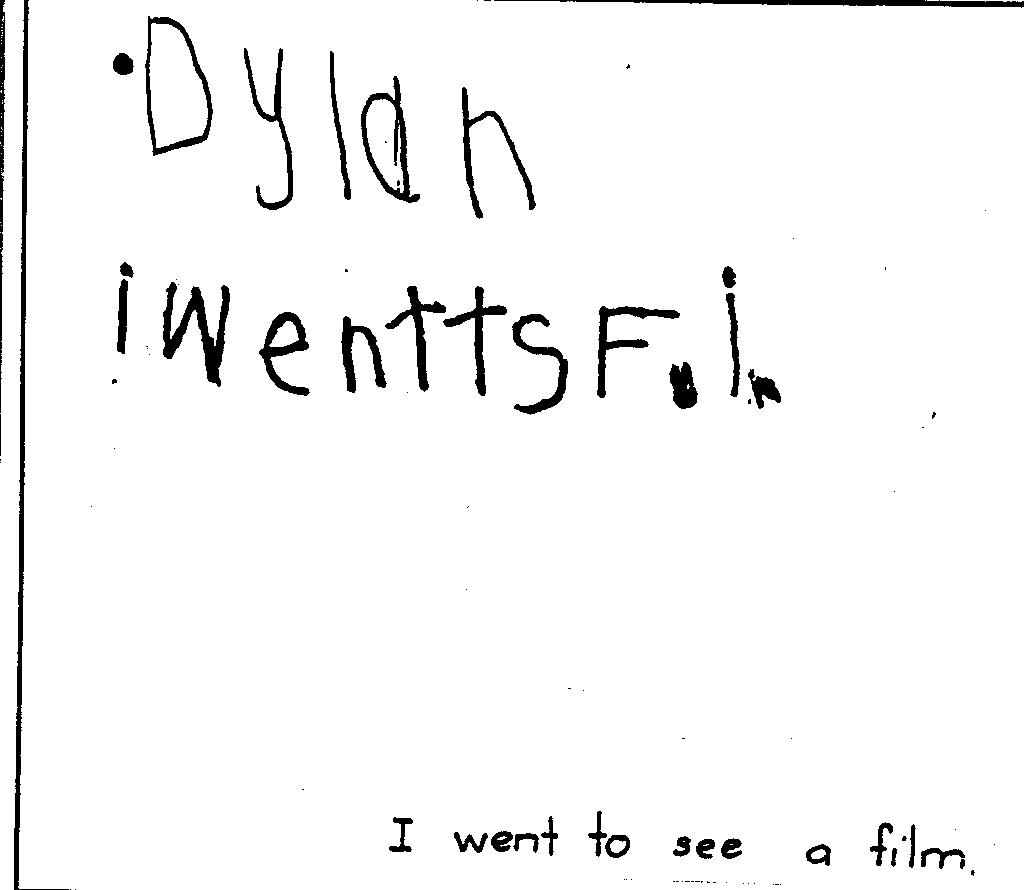 Dylan
iwenttsF.i.
I went to see a film.